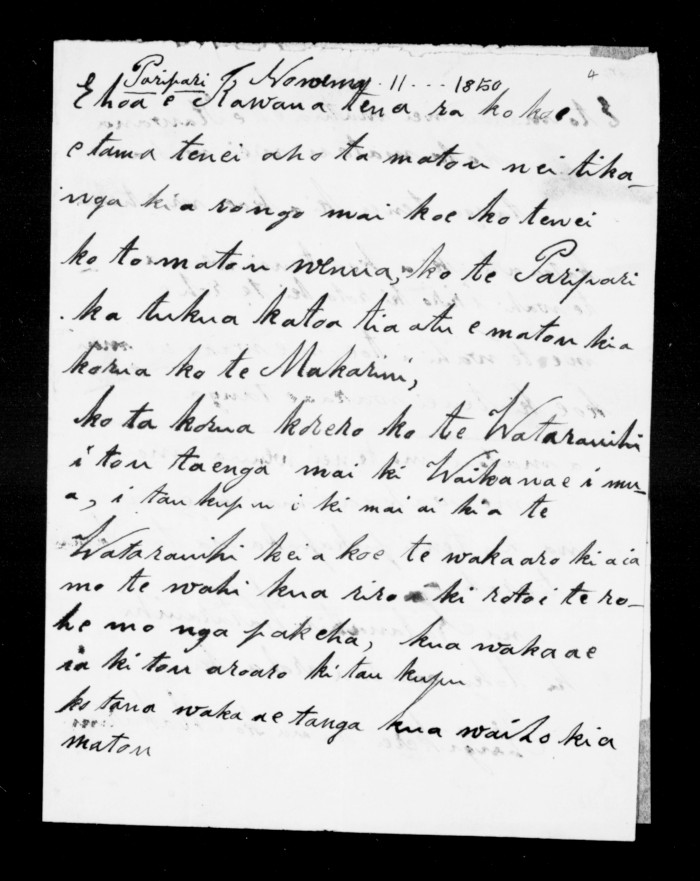 Paripari Nowema 11 ... 1850
E hoa e Kawana tena ra ko koe
e tama tenei aho ta matou nei tika-
nga kia rongo mai koe ko tenei
ko to matou wenua, ko te Paripari
ka tukua katoa tia atu e matou kia
korua ko te Makarini,
ko ta korua korero ko te Wataranihi
i tou taenga mai ki Waikanae i mu-
a, i tau kupu i ki mai ai kia te
Wataranihi kei a koe te wakaaro ki a ia
mo te wahi kua riro ki roto i te ro-
he mo nga pakeha, kua wakaae
ia ki tou aroaro ki tau kupu
ko tana wakaaetanga kua waiho kia
matou